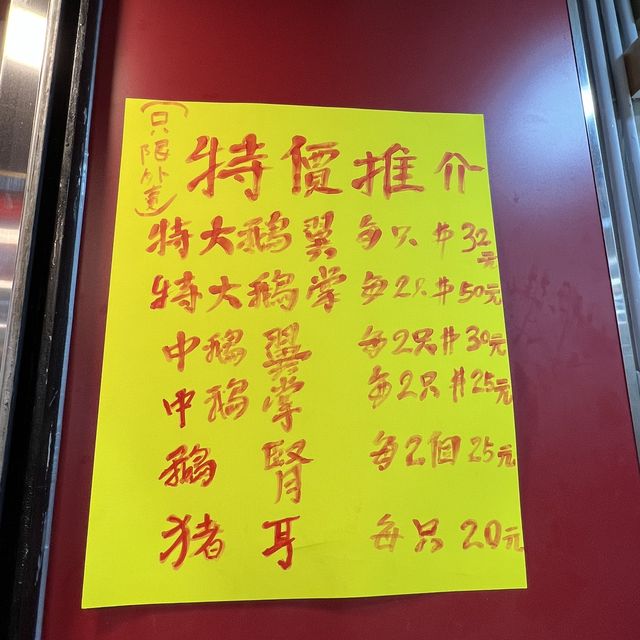 (只限外賣)
特價推介
特大鵝翼 每只 $32元
特大鵝掌 每2只 $50元
中鵝翼 每2只 $30元
中鵝掌 每2只 $25元
鵝腎 每2個 25元
猪耳 每只 20元